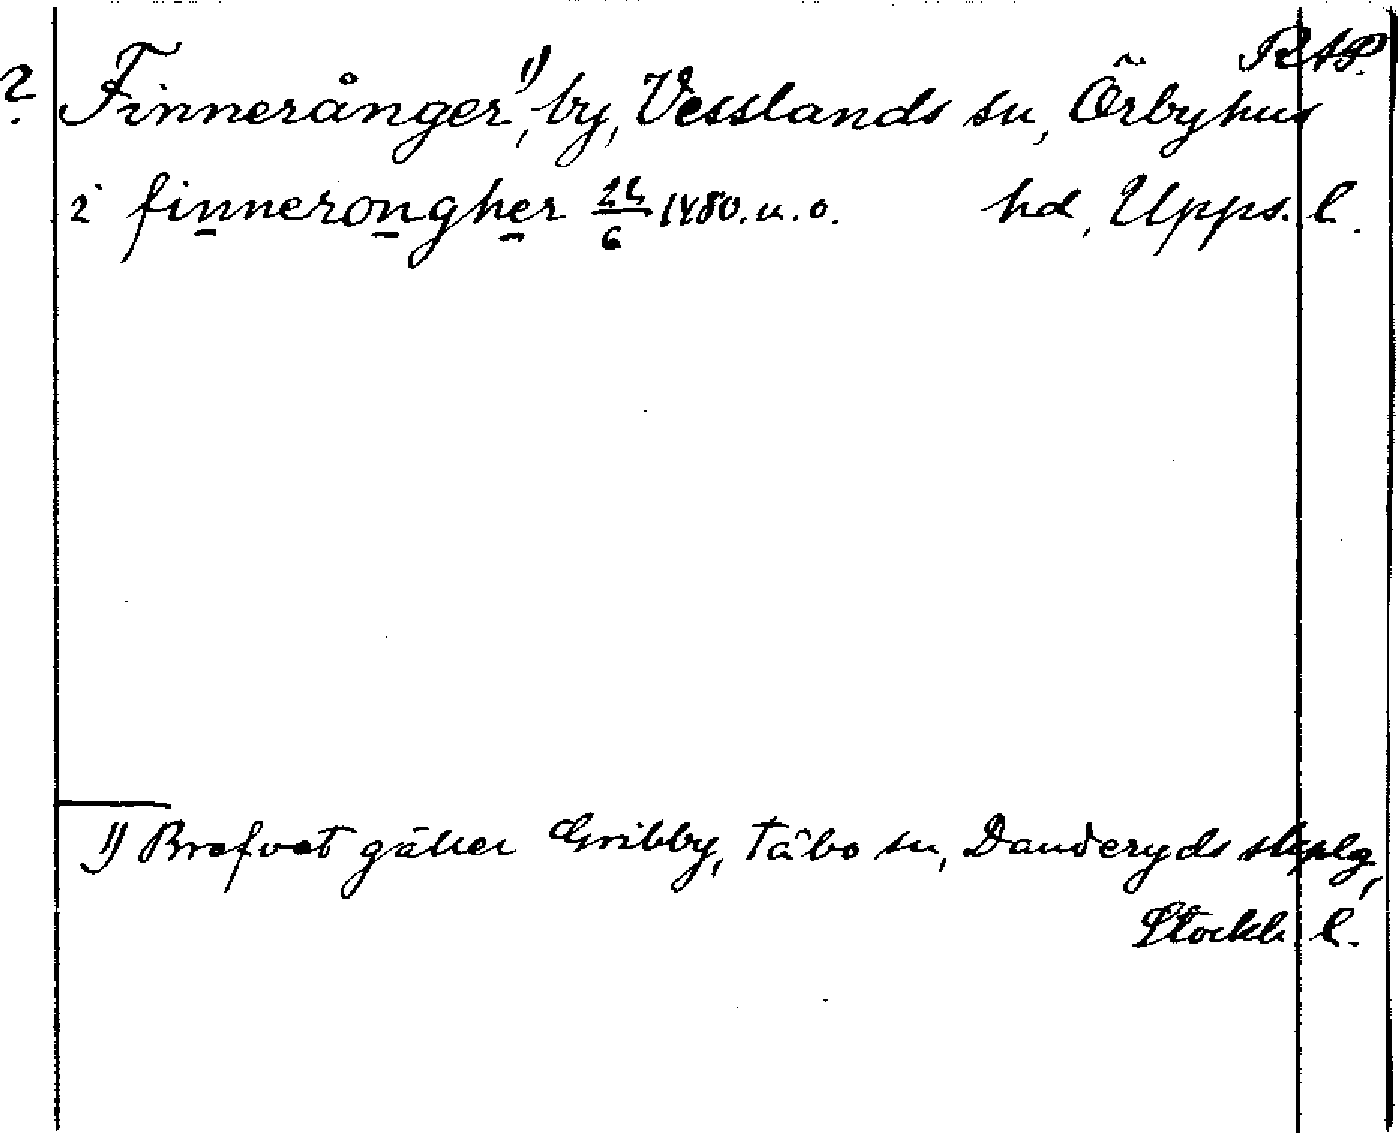 RAP.
? Finnerånger,¹⁾ by, Vesslands sn, Örbyhus
i finnerongher 24/6 1480. u. o. hd, Upps. l.
1) Brefvet gäller Gribby, Täbo sn, Danderyds skplg,
Stockh. l.